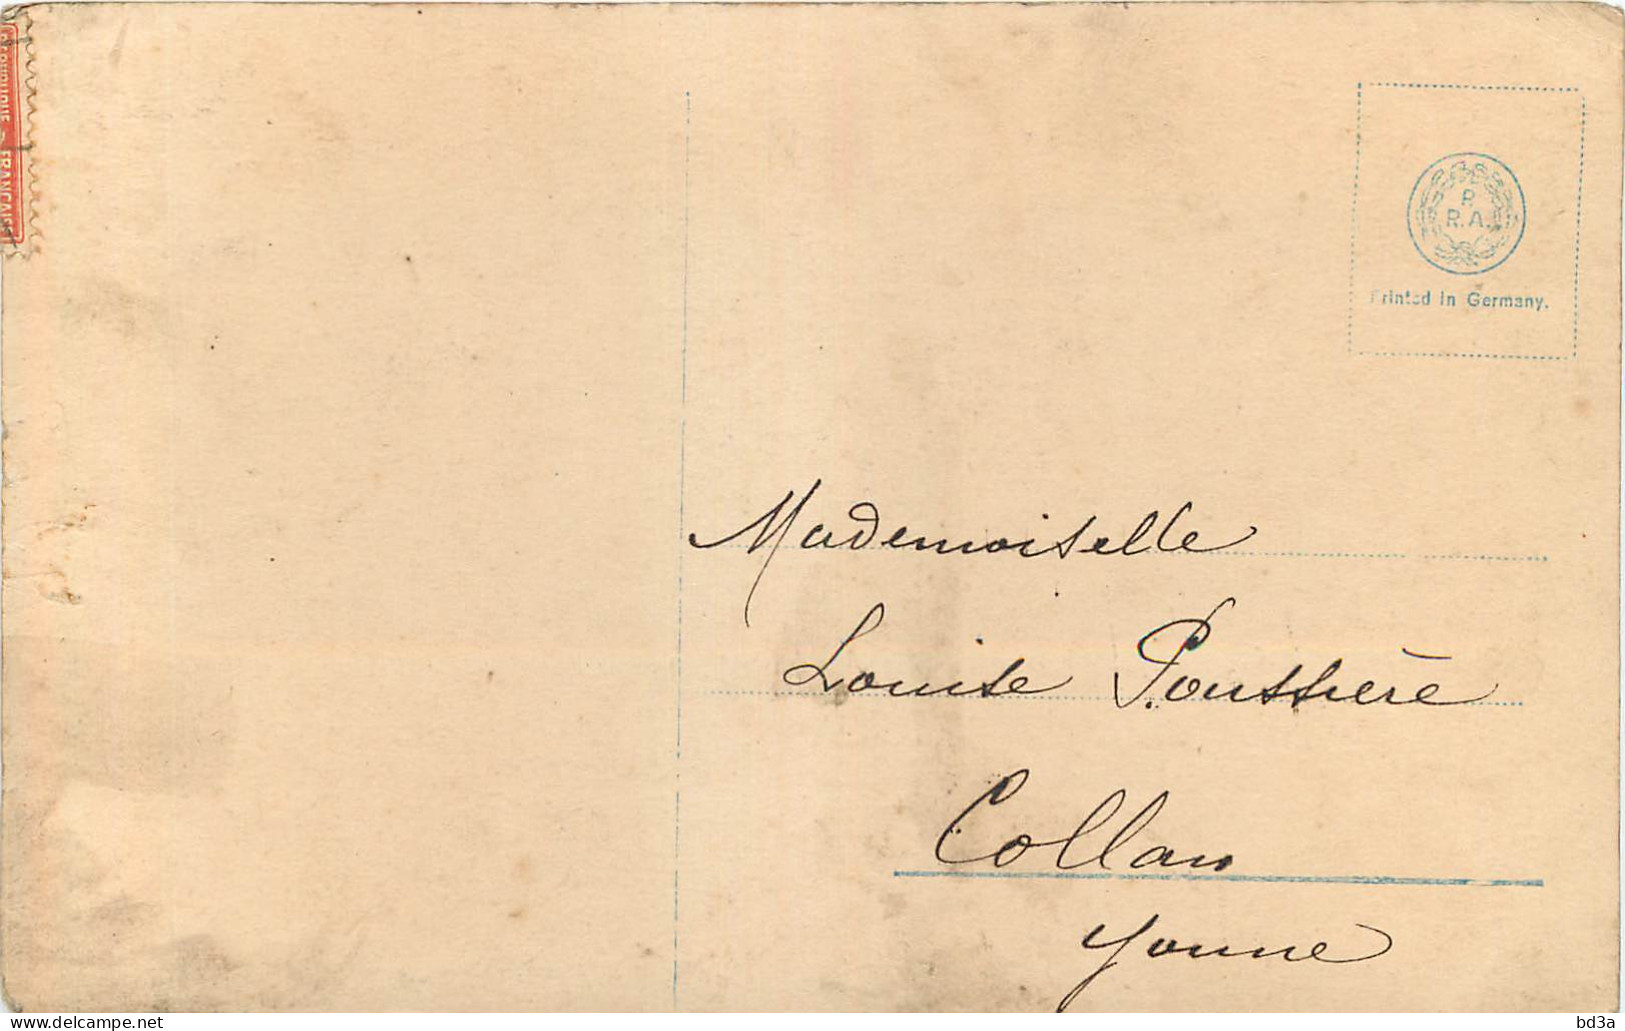 FRANÇAISE
P.
R.A.
Printed in Germany.
Mademoiselle
Louise Poussière
Collan
Yonne
www.delcampe.net
bd3a